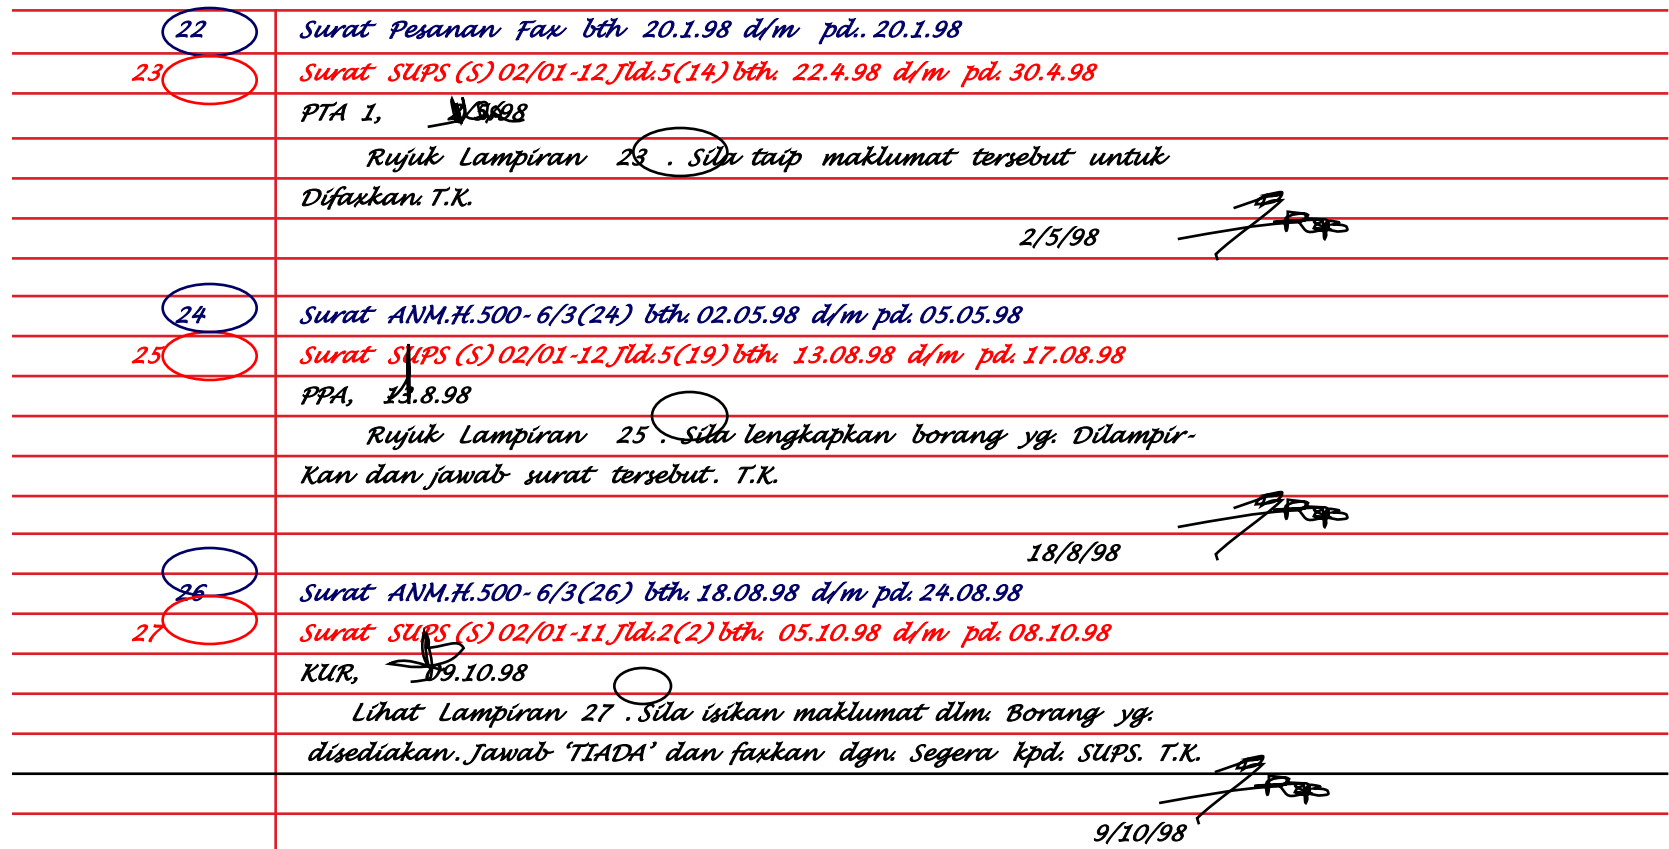 22 Surat Pesanan Fax bth 20.1.98 d/m pd.. 20.1.98
23 Surat SUPS (S) 02/01-12 Jld.5(14) bth. 22.4.98 d/m pd. 30.4.98
PTA 1, 2/5/98
Rujuk Lampiran 23 . Sila taip maklumat tersebut untuk
Difaxkan. T.K.
2/5/98
24 Surat ANM.H.500-6/3(24) bth. 02.05.98 d/m pd. 05.05.98
25 Surat SUPS (S) 02/01-12 Jld.5(19) bth. 13.08.98 d/m pd. 17.08.98
PPA, 13.8.98
Rujuk Lampiran 25 . Sila lengkapkan borang yg. Dilampir-
Kan dan jawab surat tersebut. T.K.
18/8/98
26 Surat ANM.H.500-6/3(26) bth. 18.08.98 d/m pd. 24.08.98
27 Surat SUPS (S) 02/01-11 Jld.2(2) bth. 05.10.98 d/m pd. 08.10.98
KUR, 09.10.98
Lihat Lampiran 27 . Sila isikan maklumat dlm. Borang yg.
disediakan. Jawab ‘TIADA’ dan faxkan dgn. Segera kpd. SUPS. T.K.
9/10/98